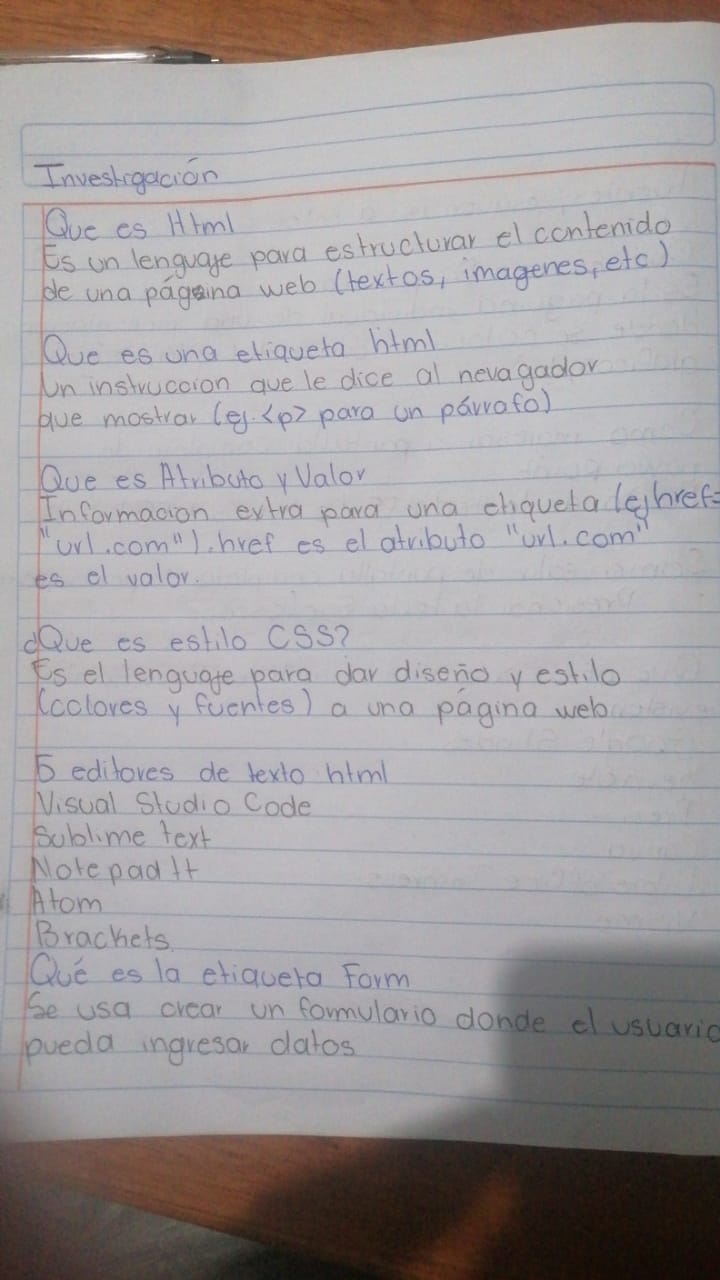 Investigación
Que es Html
Es un lenguaje para estructurar el contenido
de una página web (textos, imagenes, etc)
Que es una etiqueta html
Un instruccion que le dice al nevagador
que mostrar (ej. <p> para un párrafo)
Que es Atributo y Valor
Informacion extra para una etiqueta (ej href=
"url.com"). href es el atributo "url.com"
es el valor.
¿Que es estilo CSS?
Es el lenguaje para dar diseño y estilo
(colores y fuentes) a una página web
5 editores de texto html
Visual Studio Code
Sublime text
Notepad ++
Atom
Brackets
Qué es la etiqueta Form
Se usa crear un formulario donde el usuario
pueda ingresar datos